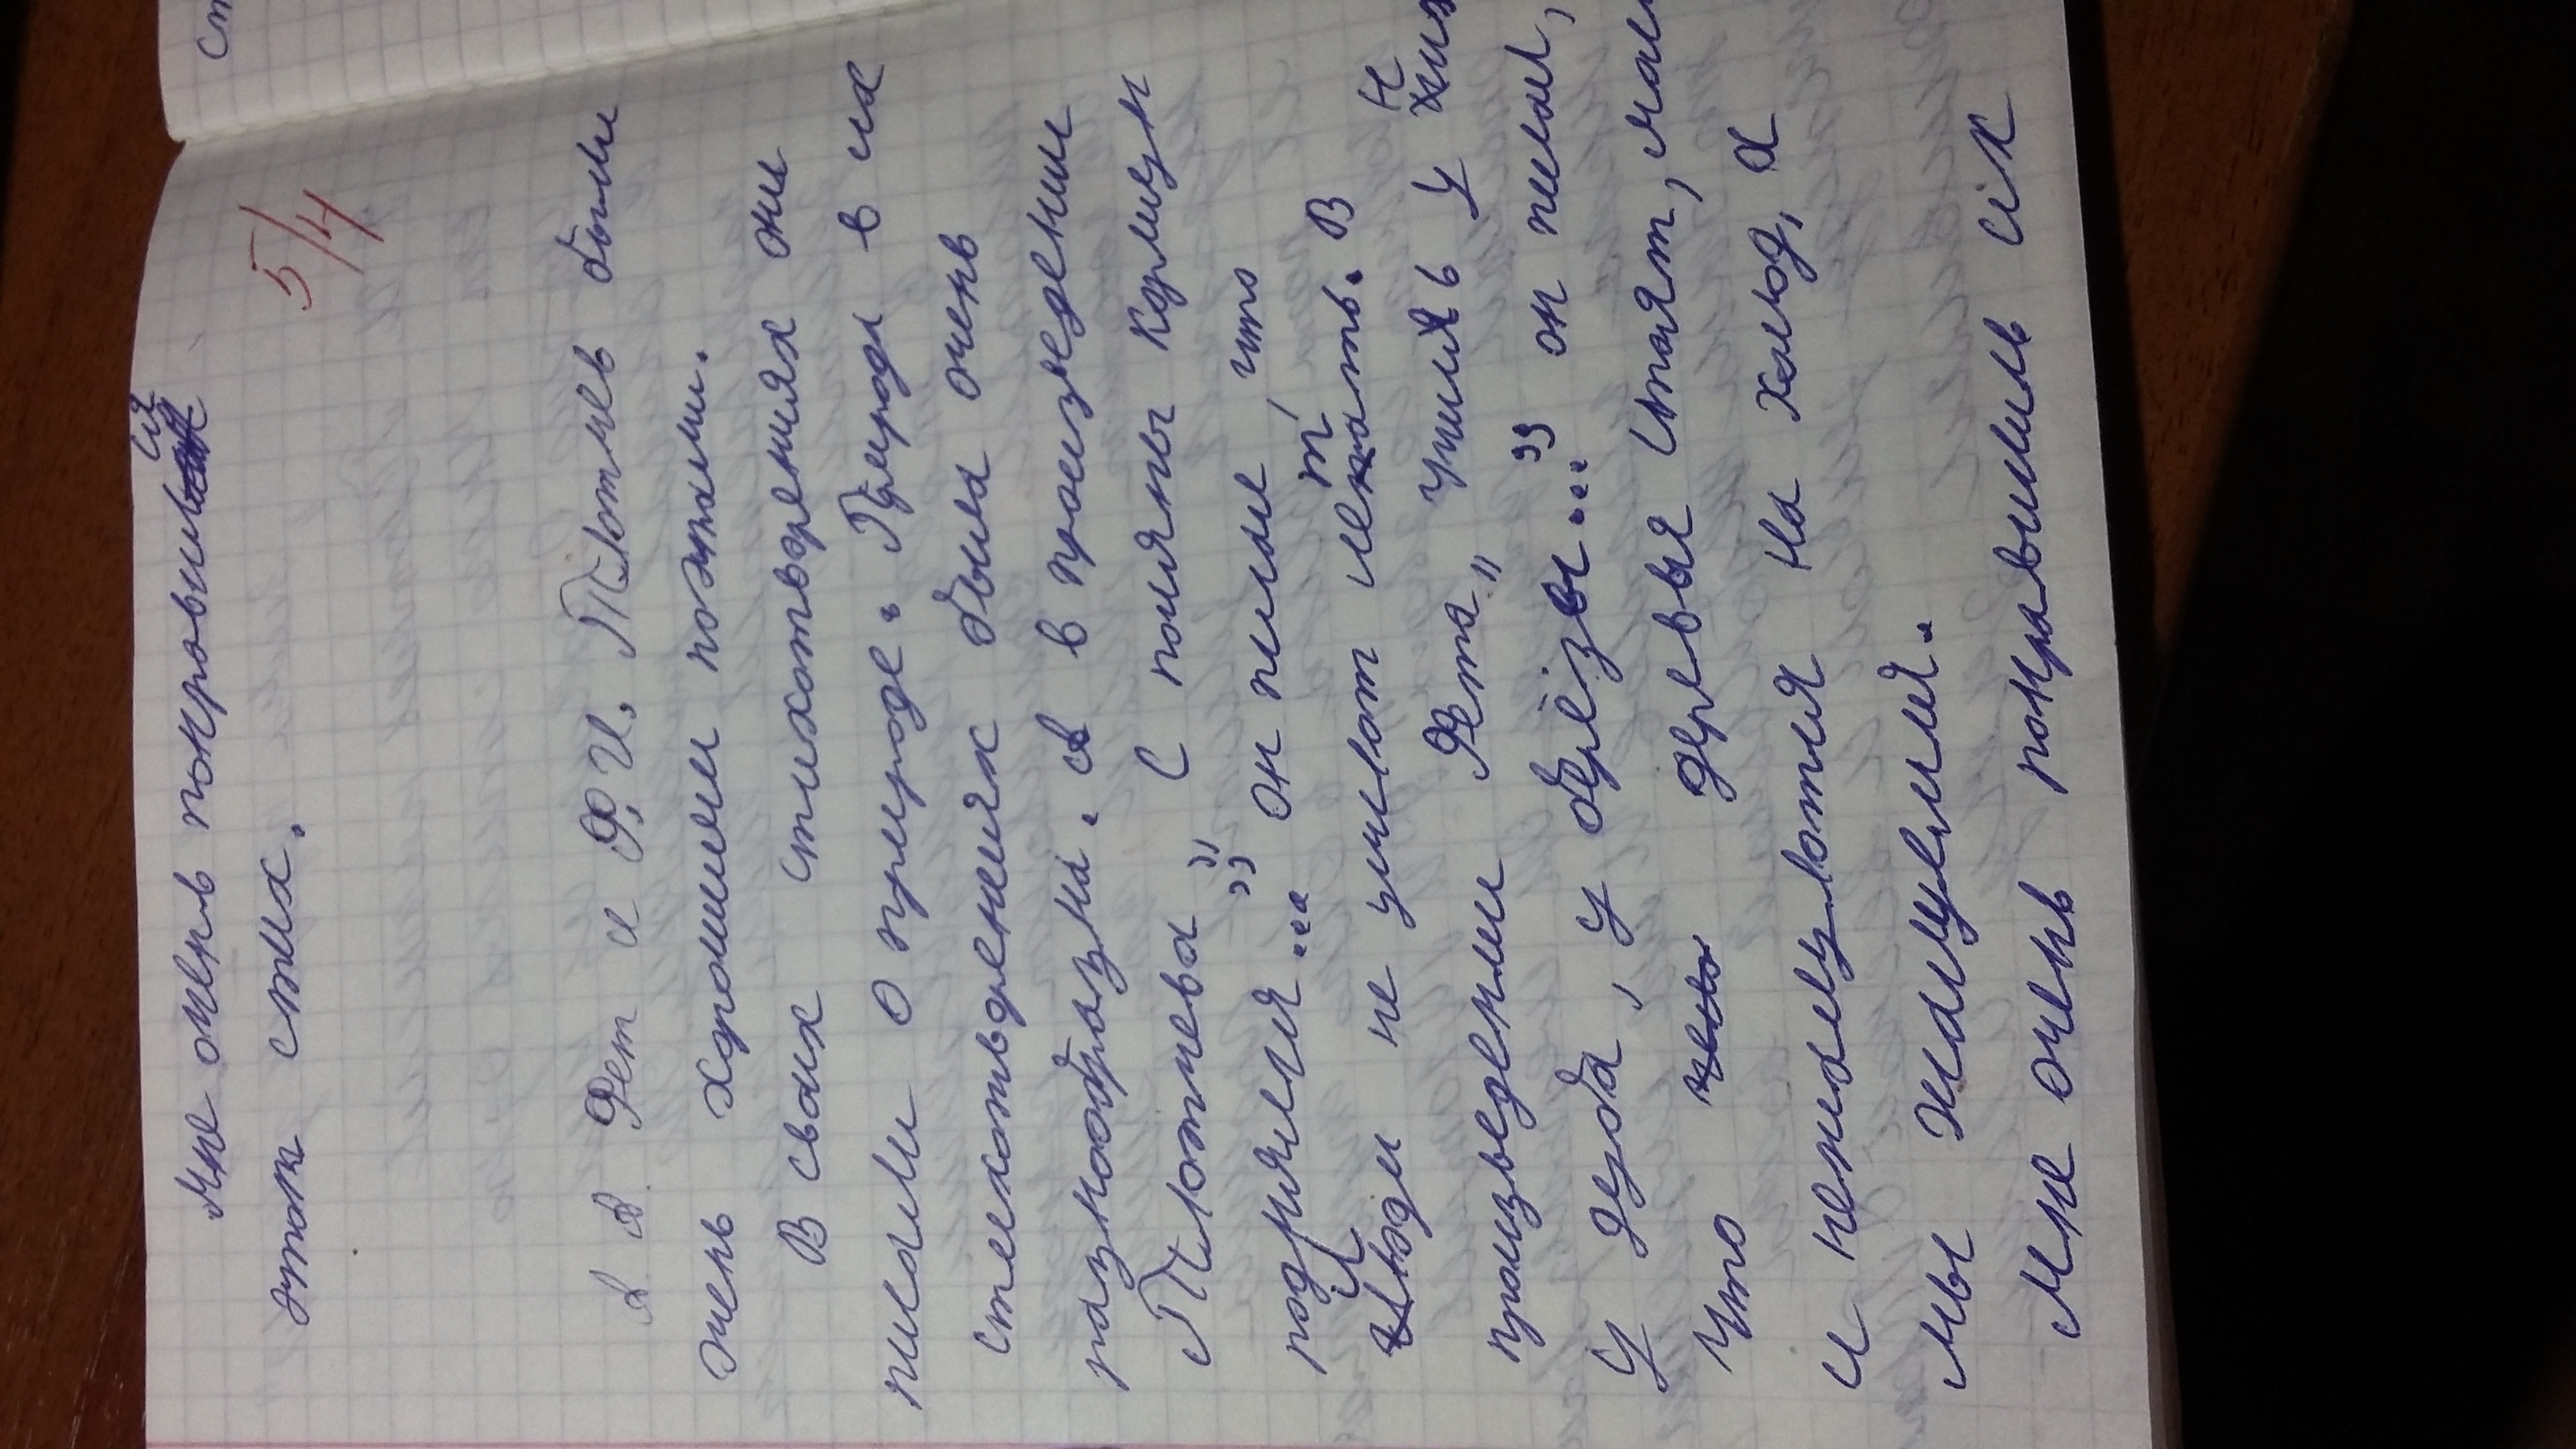 Мне очень понравился
этот стих.
5/4
А А Фет и Ф, И, Тютчев были
очень хорошими поэтами.
В своих стихотворениях они
писали о природе. Природа в их
стехотворениях была очень
разнообразна. в произведении
Тютчева "С поляны коршун
поднялся..." он писал, что
Люди не умеют летать. В
произведении Фета "Учись у них
у дуба, у берёзы..." он писал,
что деревья стоят, молч
и нежалуются на холод, а
мы жалуемся.
Мне очень понравились их